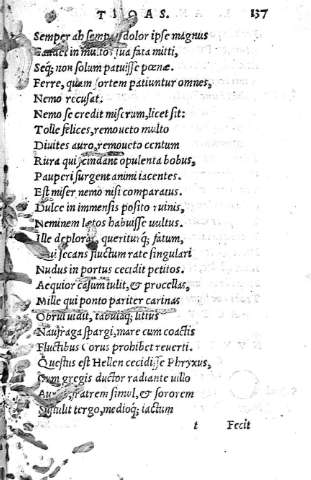 TROAS. 137
Semper ab semper dolor ipse magnus
Gaudet in multos sua fata mitti,
Seq; non solum patuisse pœnæ.
Ferre, quam sortem patiuntur omnes,
Nemo recusat.
Nemo se credit miserum, licet sit:
Tolle felices, remoueto multo
Diuites auro, remoueto centum
Rura qui scindant opulenta bobus,
Pauperi surgent animi iacentes.
Est miser nemo nisi comparatus.
Dulce in immensis posito ruinis,
Neminem lætos habuisse uultus.
Ille deplorat, queriturq; fatum,
Qui secans fluctum rate singulari
Nudus in portus cecidit petitos.
Aequior casum tulit, & procellas,
Mille qui ponto pariter carinas
Obrui uidit, tabulaq; litus
Naufraga spargi, mare cum coactis
Fluctibus Corus prohibet reuerti.
Questus est Hellen cecidisse Phryxus,
Cum gregis ductor radiante uillo
Aureo, fratrem simul, & sororem
Sustulit tergo, medioq; iactum
t Fecit